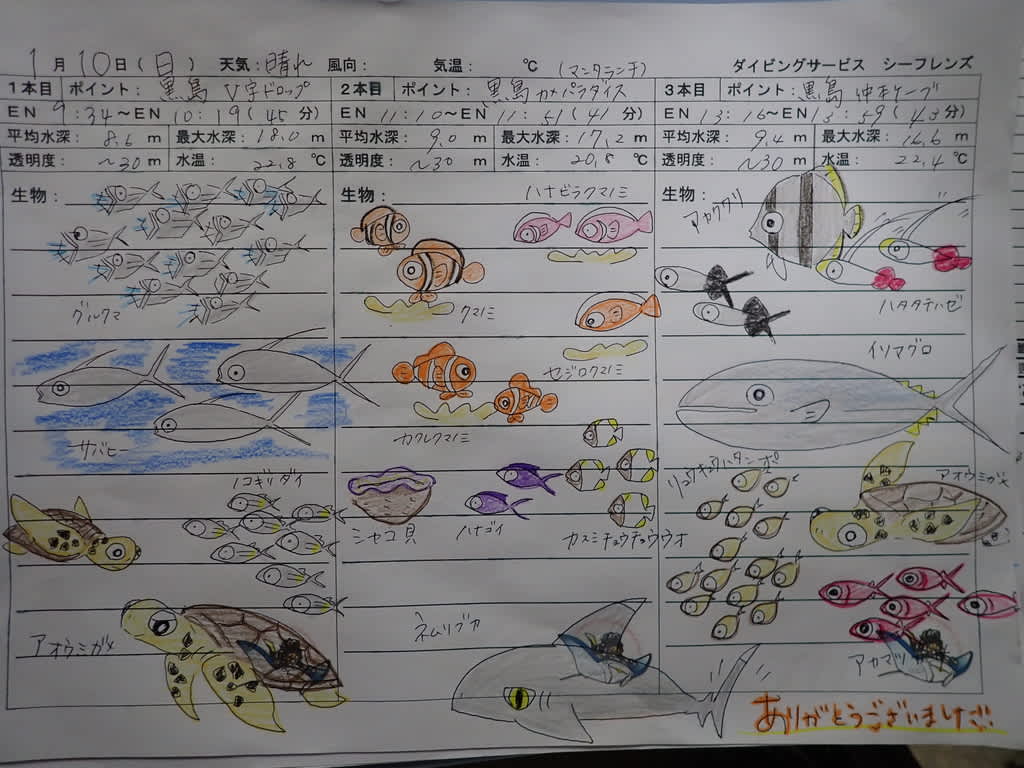 1月10日(日) 天気:晴れ 風向: 気温: ℃ (マンタランチ) ダイビングサービス シーフレンズ
1本目 ポイント: 黒島 V字ドロップ 2本目 ポイント: 黒島 カメパラダイス 3本目 ポイント: 黒島
EN 9:34〜EN 10:19(45分) EN 11:10〜EN 11:51(41分) EN 13:16〜EN 13:59(43分)
平均水深: 8.6 m 最大水深: 18.0 m 平均水深: 9.0 m 最大水深: 17.2 m 平均水深: 9.4 m 最大水深: 16.6 m
透明度: 〜30 m 水温: 22.8 ℃ 透明度: 〜30 m 水温: 20.8 ℃ 透明度: 〜30 m 水温: 22.4 ℃
生物:
グルクマ
サバヒー
ノコギリダイ
アオウミガメ
生物:
ハナビラクマノミ
クマノミ
セジロクマノミ
カクレクマノミ
シャコ貝
ハナゴイ
カスミチョウチョウウオ
ネムリブカ
生物:
アカククリ
ハタタテハゼ
イソマグロ
リュウキュウハタンポ
アオウミガメ
ありがとうございました!